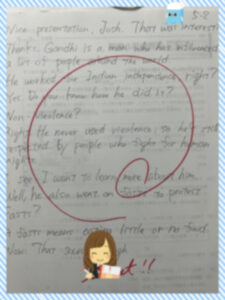 5.8
Nice presentation, Josh. That was interesti
Thanks. Gandhi is a man who has influenced
a lot of people around the world.
He worked for Indian independence, right?
Yes. Do you know how he did it?
Non-violence?
Right. He never used violence, so he's still
respected by people who fight for human
rights.
I see. I want to learn more about him.
Well, he also went on fasts to protect
Fasts?
A fasts means eating little or no food.
Wow. That